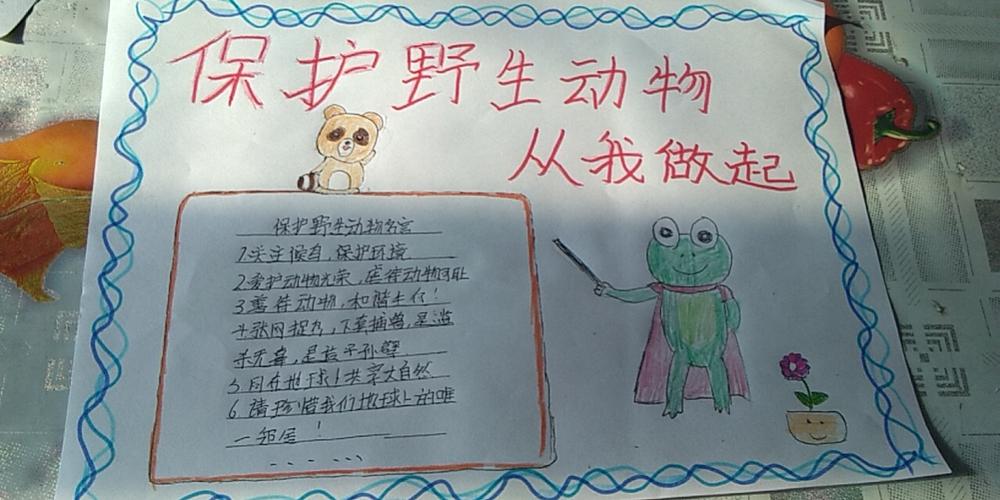 保护野生动物
从我做起
保护野生动物名言
1.关注候鸟,保护环境
2.爱护动物光荣,虐待动物可耻
3.善待动物,和谐
4.张网捉鸟,下套捕兽,是滥
杀无辜,是孩子孙孽
5.同在地球!共享大自然
6.请珍惜我们地球上的唯
一邻居!